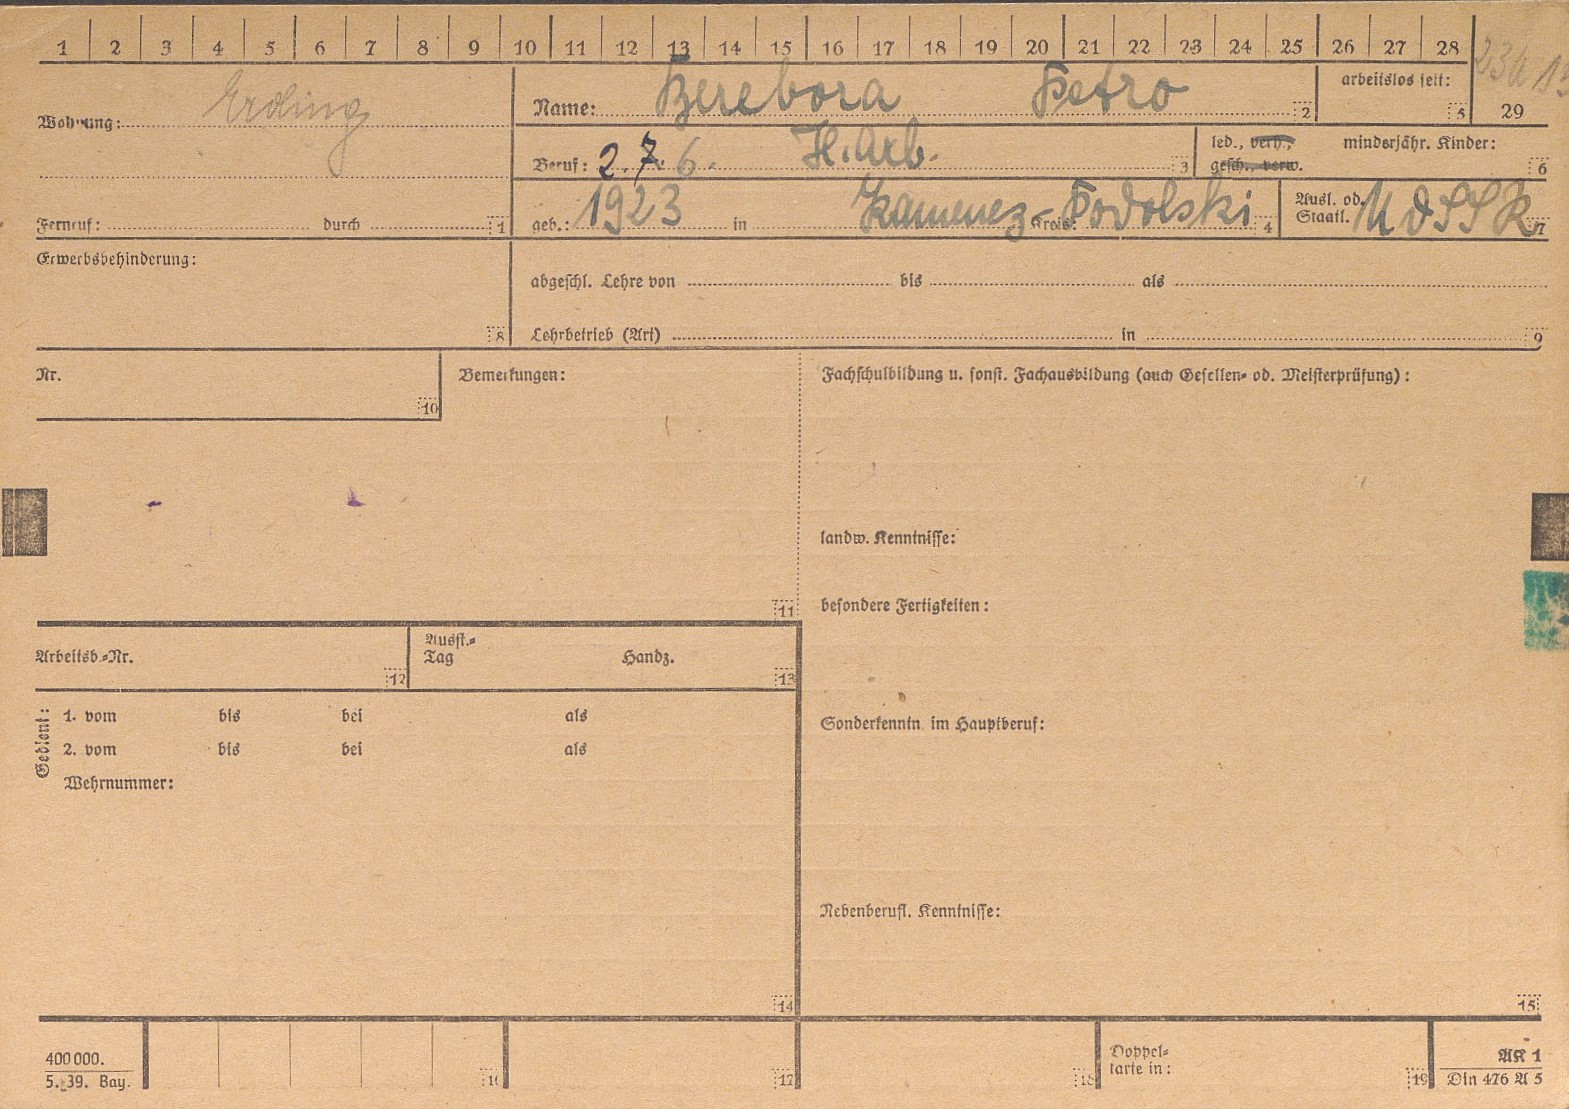 1 2 3 4 5 6 7 8 9 10 11 12 13 14 15 16 17 18 19 20 21 22 23 24 25 26 27 28
Wohnung: Erding
Name: Berebora Petro 2
arbeitslos seit: 5 29
Beruf: 2. 7. 6. H. Arb. 3
led., verh., minderjähr. Kinder:
gesch., verw. 6
Fernruf: durch 1
geb.: 1923 in Kamenez-Podolski Kreis: 4
Ausl. od.
Staatl. UdSSR 7
Erwerbsbehinderung:
8
abgeschl. Lehre von bis als
Lehrbetrieb (Art) in 9
Nr.
10
Bemerkungen:
11
Fachschulbildung u. sonst. Fachausbildung (auch Gesellen- od. Meisterprüfung):
landw. Kenntnisse:
besondere Fertigkeiten:
Arbeitsb.-Nr.
12
Ausst.-
Tag Handz.
13
Gedient:
1. vom bis bei als
2. vom bis bei als
Wehrnummer:
14
Sonderkenntn. im Hauptberuf:
Nebenberufl. Kenntnisse:
15
400 000.
5. 39. Bay.
16 17 18
Doppel-
karte in:
19
AK 1
Din 476 A 5